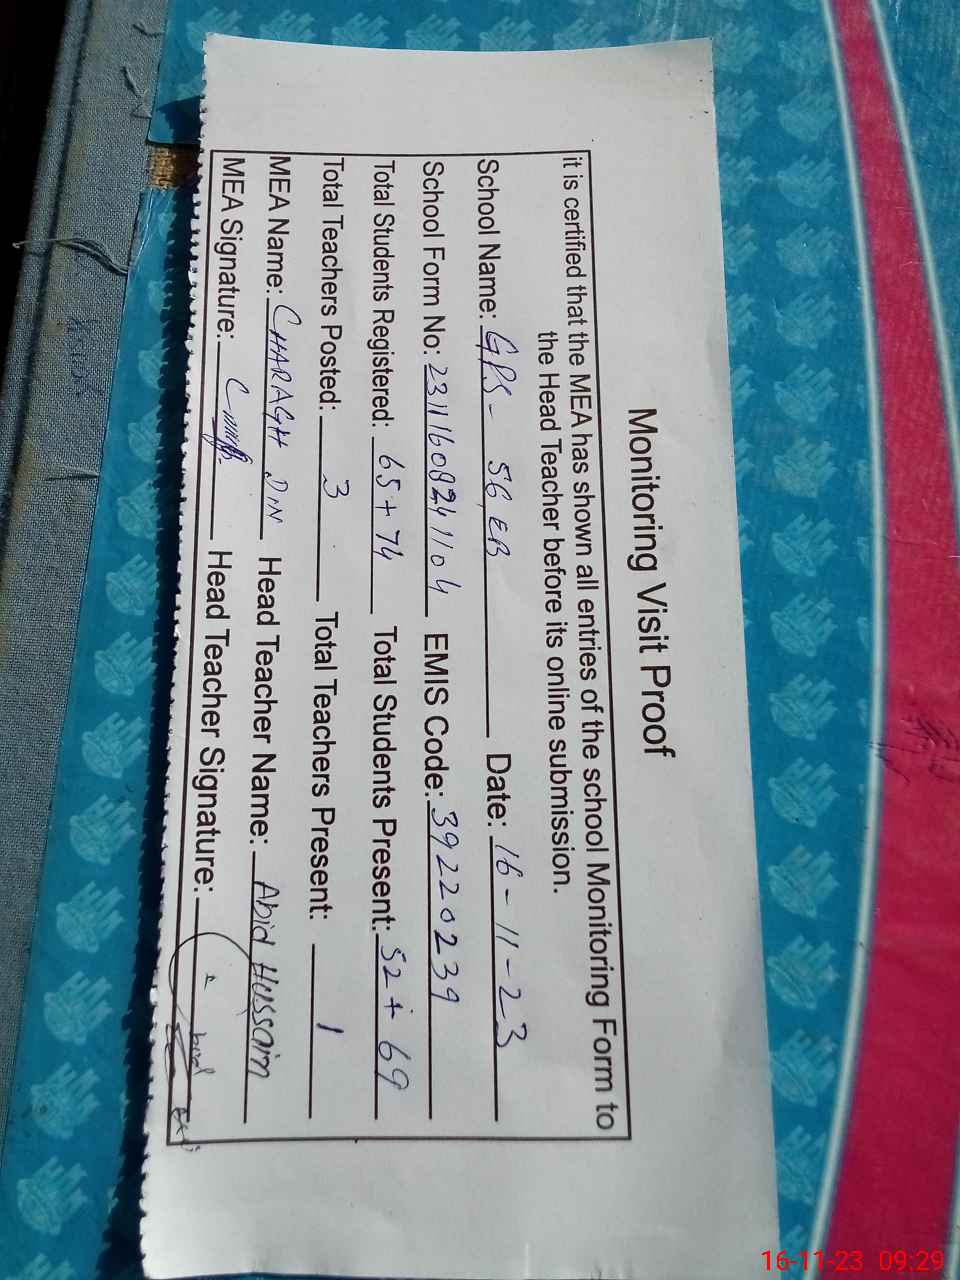 Monitoring Visit Proof
it is certified that the MEA has shown all entries of the school Monitoring Form to
the Head Teacher before its online submission.
School Name: GPS - 56 EB Date: 16-11-23
School Form No: 23111608241104 EMIS Code: 39220239
Total Students Registered: 65+74 Total Students Present: 52+69
Total Teachers Posted: 3 Total Teachers Present: 1
MEA Name: CHARAGH DIN Head Teacher Name: Abid Hussain
MEA Signature: Head Teacher Signature:
16-11-23 09:29